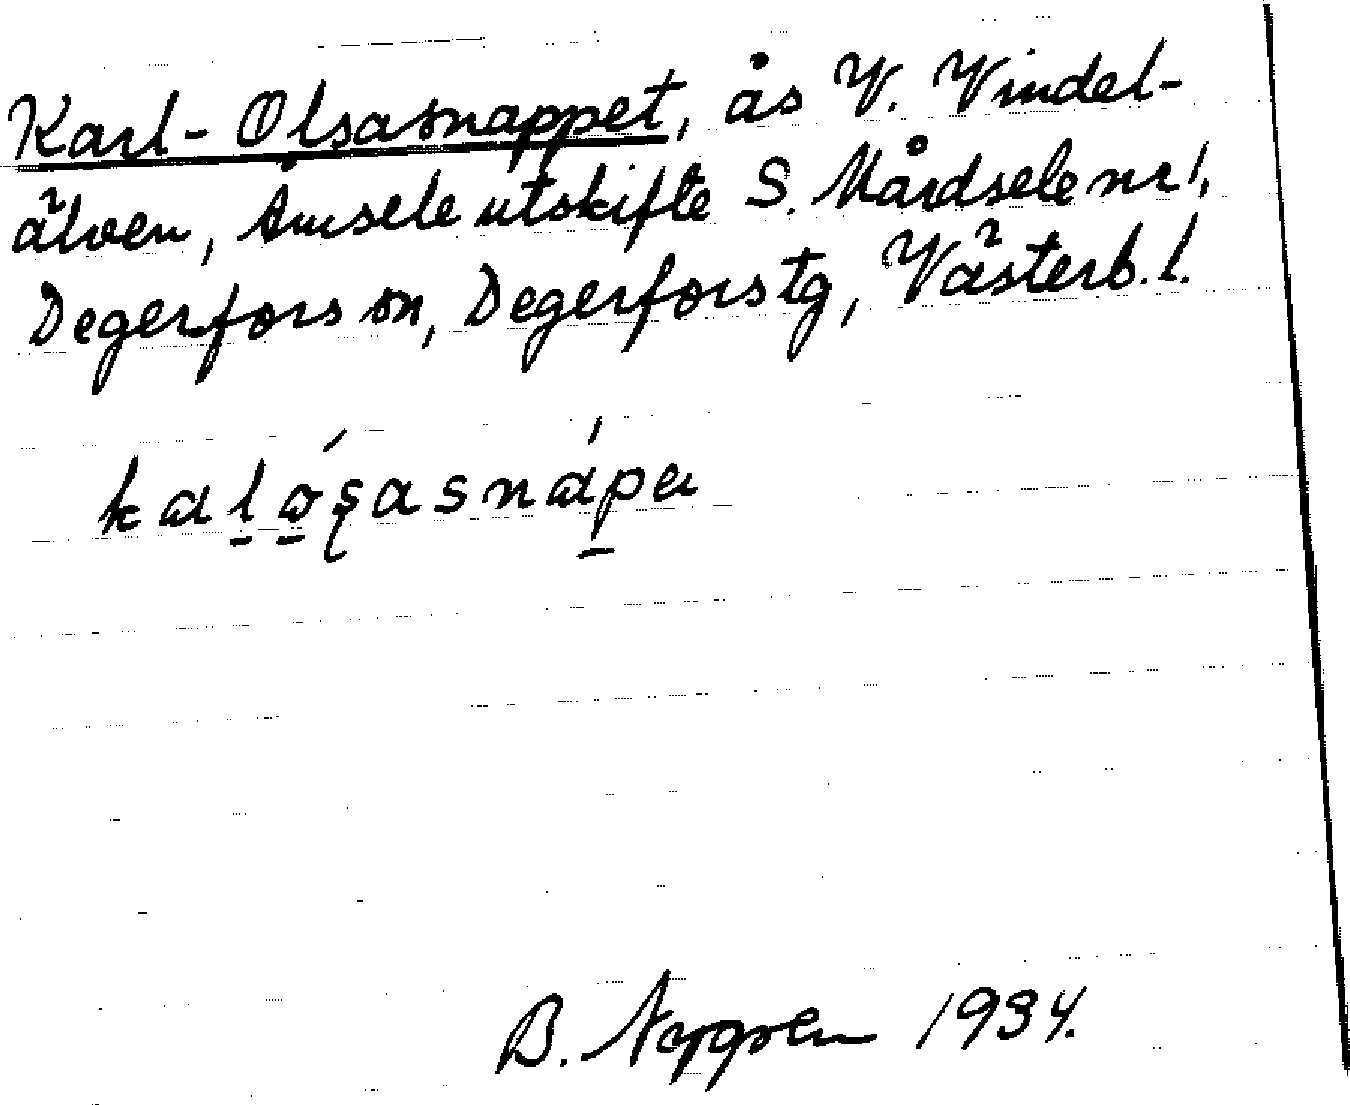 Karl-Olsasnappet, ås V. Vindel-
älven, Åmsele utskifte S. Mårdsele nr 1,
Degerfors sn, Degerfors tg, Västerb. l.
kalọ́ṣasnápa
B. Nygren 1934.